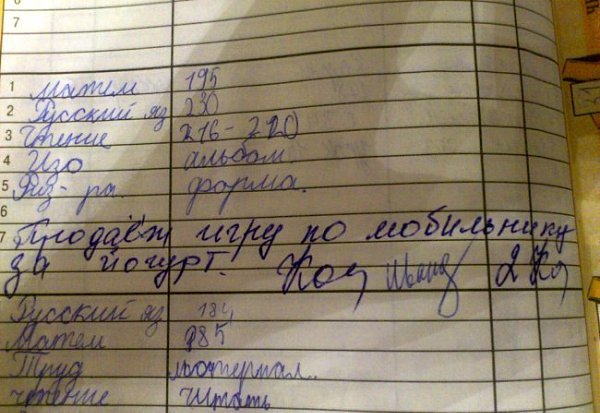 6
7
1 матем 195
2 Русский яз 230
3 Чтение 216-220
4 Изо альбом
5 Физ-ра. форма.
6
7 Продаёт игру по мобильнику
за йогурт.
Русский яз 184
Матем 185
Труд материал..
чтение читать